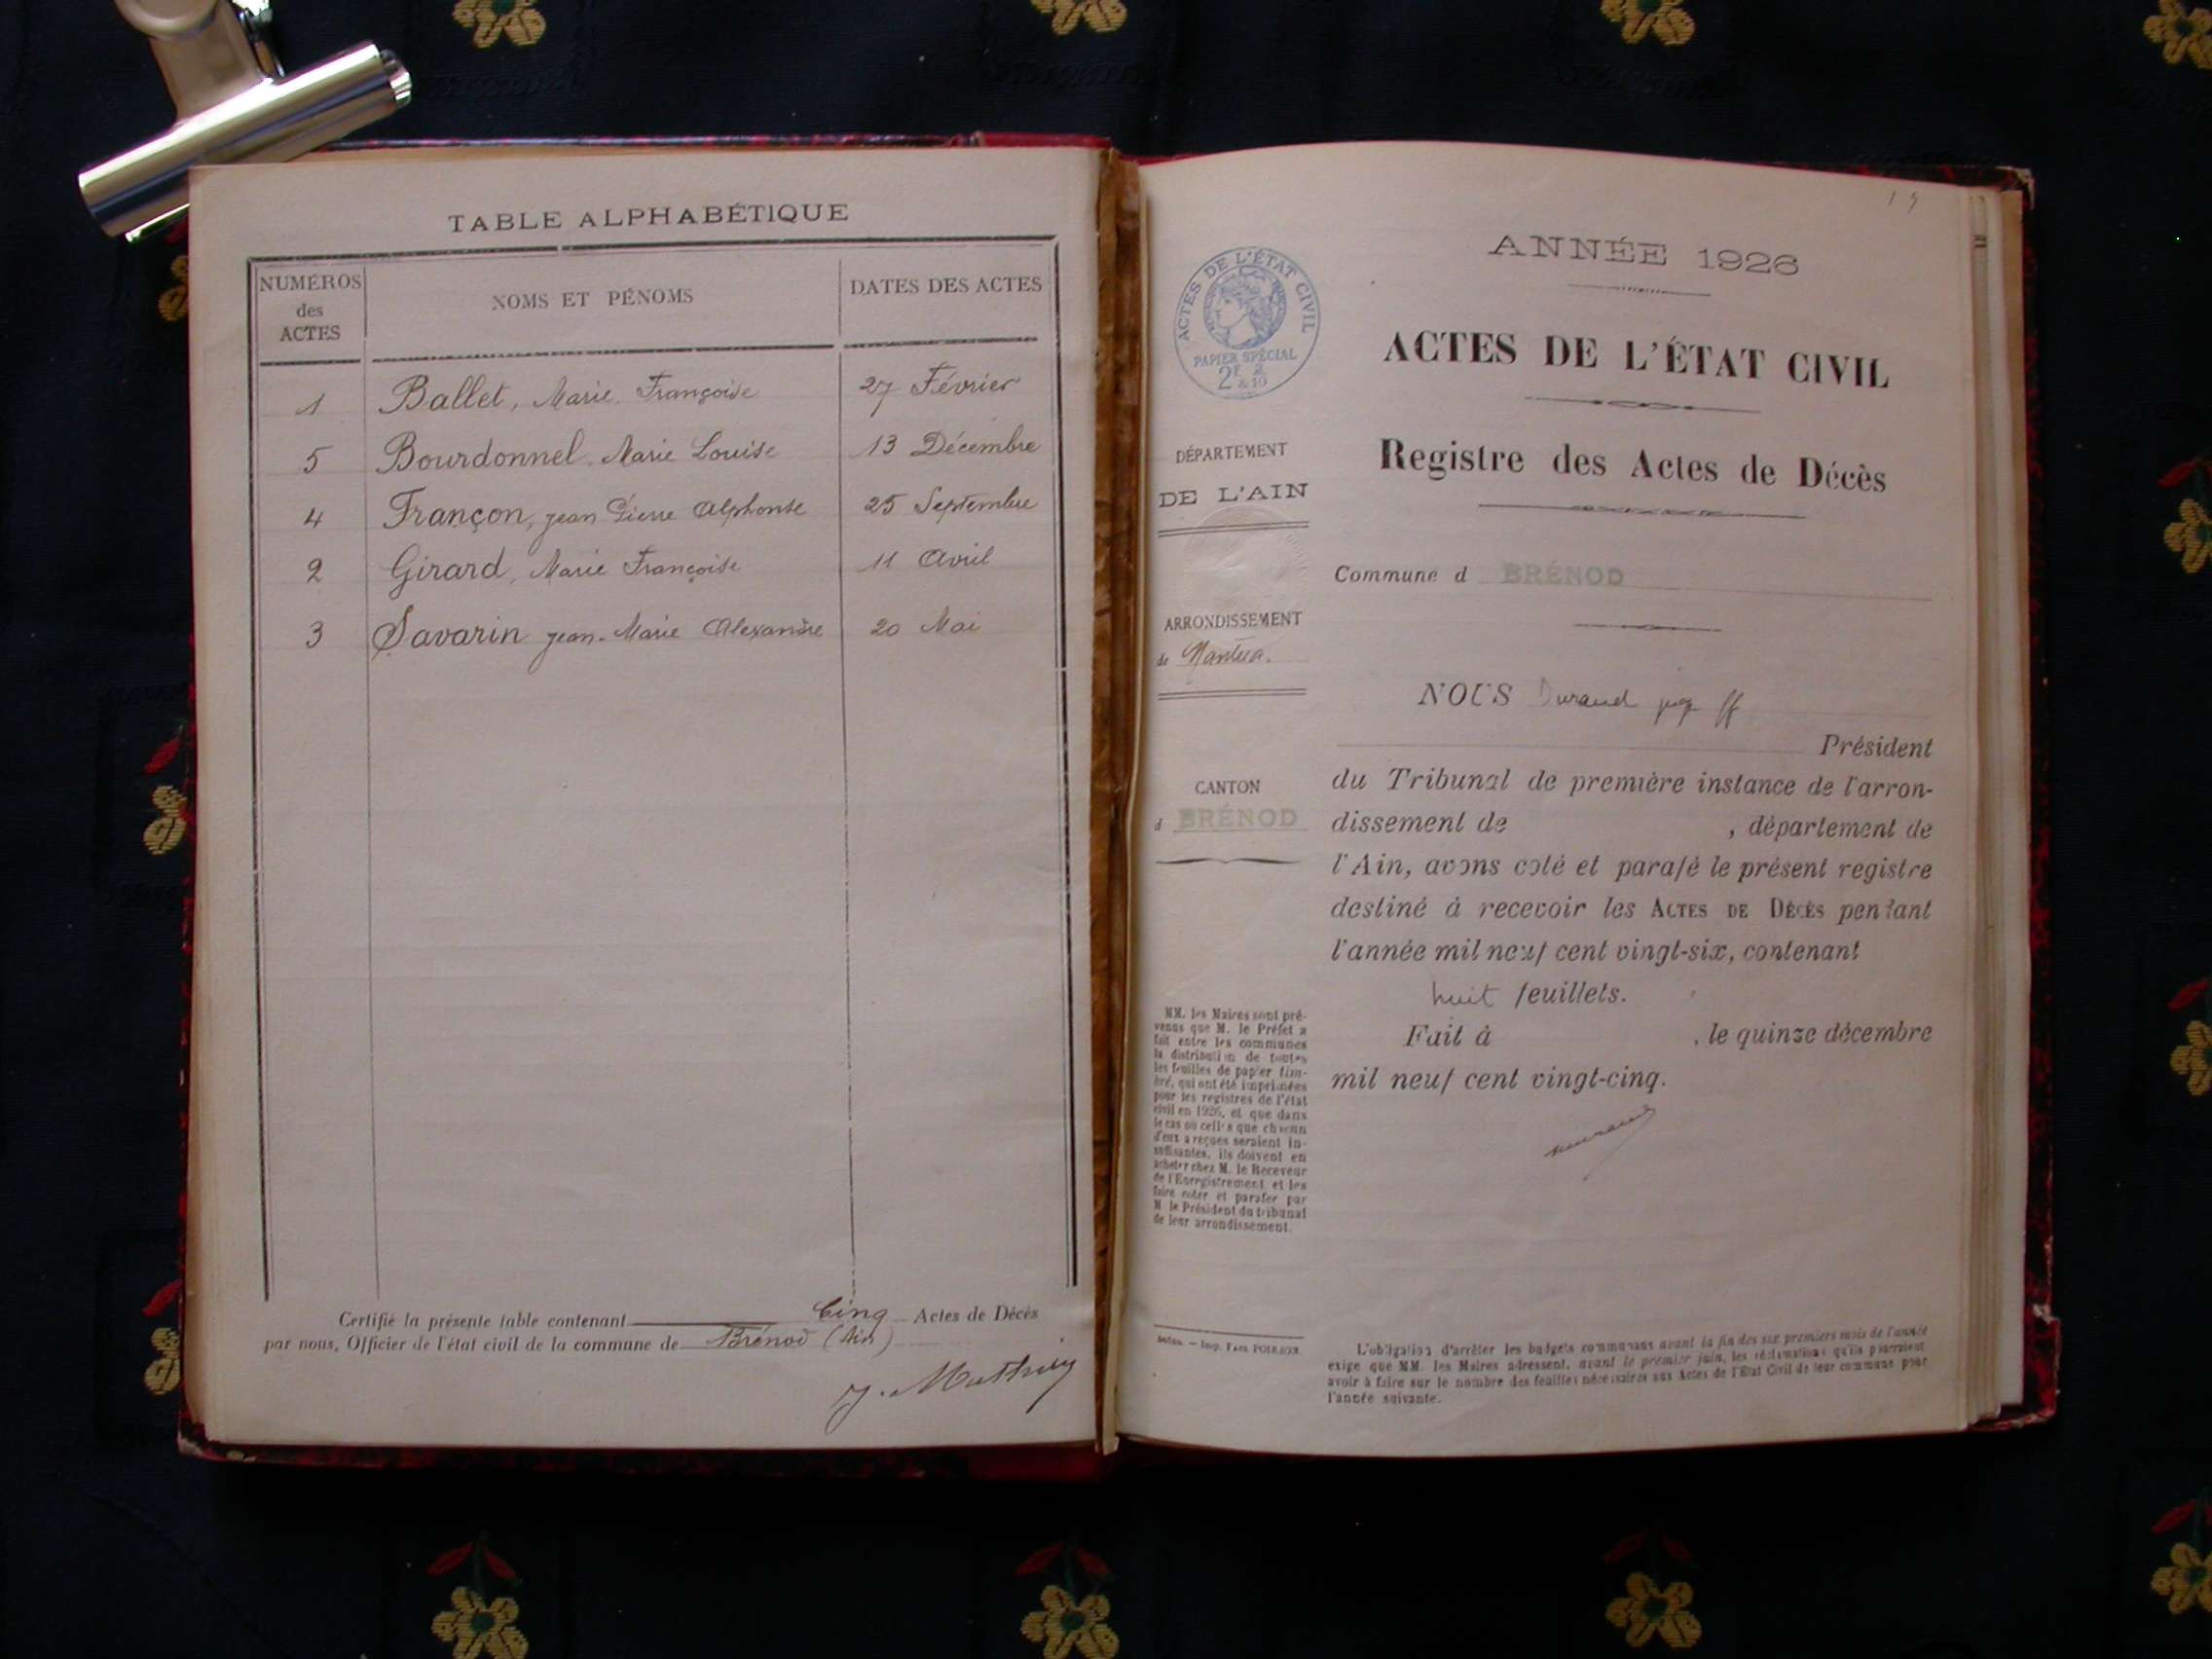 TABLE ALPHABÉTIQUE
NUMÉROS des ACTES
NOMS ET PÉNOMS
DATES DES ACTES
1 Ballet, Marie Françoise 27 Février
5 Bourdonnel Marie Louise 13 Décembre
4 Françon, jean Pierre Alphonse 25 Septembre
2 Girard, Marie Françoise 11 Avril
3 Savarin jean-Marie Alexandre 20 Mai
Certifié la présente table contenant Cinq Actes de Décès
par nous, Officier de l'état civil de la commune de Brénod (Ain)
J. Mathey
15
ANNÉE 1926
ACTES DE L'ÉTAT CIVIL
PAPIER SPÉCIAL
2F 2
& 10
ACTES DE L'ÉTAT CIVIL
Registre des Actes de Décès
DÉPARTEMENT
DE L'AIN
Commune d BRÉNOD
ARRONDISSEMENT
de Nantua.
CANTON
d BRÉNOD
NOUS Durand juge ff
Président
du Tribunal de première instance de l'arron-
dissement de , département de
l'Ain, avons coté et parafé le présent registre
destiné à recevoir les ACTES DE DÉCÈS pendant
l'année mil neuf cent vingt-six, contenant
huit feuillets.
Fait à , le quinze décembre
mil neuf cent vingt-cinq.
Durand
MM. les Maires sont pré-
venus que M. le Préfet a
fait entre les communes
la distribution de toutes
les feuilles de papier tim-
bré, qui ont été imprimées
pour les registres de l'état
civil en 1926, et que dans
le cas où celles que chacun
d'eux a reçues seraient in-
suffisantes, ils doivent en
acheter chez M. le Receveur
de l'Enregistrement et les
faire coter et parafer par
M. le Président du tribunal
de leur arrondissement.
L'obligation d'arrêter les budgets communaux avant la fin des six premiers mois de l'année
exige que MM. les Maires adressent, avant le premier juin, les réclamations qu'ils pourraient
avoir à faire sur le nombre des feuilles nécessaires aux Actes de l'État Civil de leur commune pour
l'année suivante.